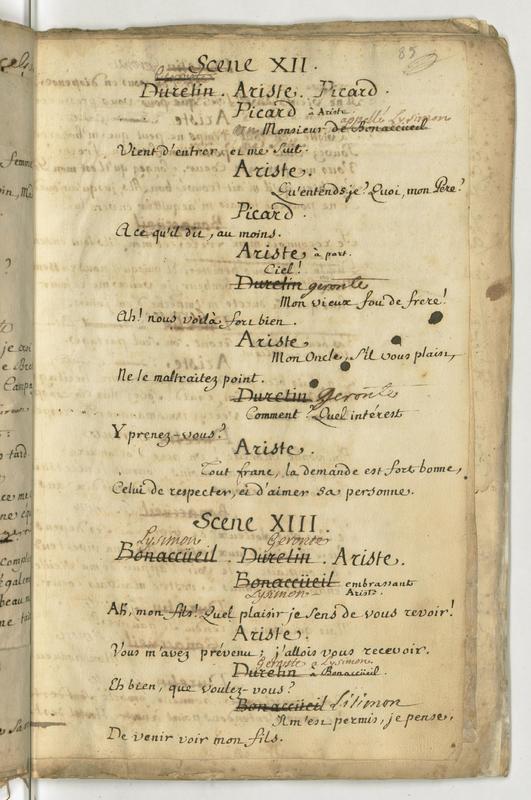 85
Scene XII.
Geronte
Duretin. Ariste. Picard.
Picard à Ariste
appellé Lysimon
Monsieur de Bonaccüeil
Vient d'entrer, et me suit.
Ariste.
Qu'entends-je? Quoi, mon Pere?
Picard.
A ce qu'il dit, au moins.
Ariste, à part.
Ciel!
Duretin geronte
Mon vieux fou de frere!
Ah! nous voilà fort bien.
Ariste,
Mon Oncle, s'il vous plaist,
Ne le maltraitez point.
Duretin Geronte
Comment? Quel intérest
Y prenez-vous?
Ariste.
Tout franc, la demande est fort bonne,
Celui de respecter, et d'aimer sa personne.
Scene XIII.
Lysimon Geronte
Bonaccüeil. Duretin. Ariste.
Bonaccüeil embrassant
Lysimon Ariste.
Ah, mon fils! Quel plaisir je sens de vous revoir!
Ariste.
Vous m'avez prévenu; j'allois vous recevoir.
Geronte a Lysimon.
Duretin à Bonaccüeil.
Eh bien, que voulez-vous?
Bonaccüeil Lisimon
Il m'est permis, je pense,
De venir voir mon fils.